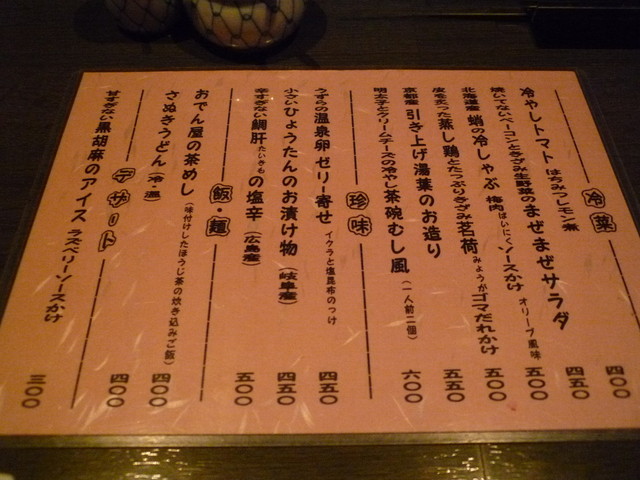 冷菜
冷やしトマト はちみつレモン煮 四〇〇
焼いてないベーコンときざみ生野菜のまぜまぜサラダ オリーブ風味 四五〇
北海道産 蛸の冷しゃぶ 梅肉ばいにくソースかけ 五〇〇
皮を炙った蒸し鶏とたっぷりきざみ茗荷みょうがゴマだれかけ 五〇〇
京都産 引き上げ湯葉のお造り 五五〇
明太子とクリームチーズの冷やし茶碗むし風（一人前二個） 六〇〇
珍味
うずらの温泉卵ゼリー寄せ イクラと塩昆布のっけ 四五〇
小さいひょうたんのお漬け物（岐阜産） 四五〇
辛すぎない鯛肝たいきもの塩辛（広島産） 五〇〇
飯・麺
おでん屋の茶めし（味付けしたほうじ茶の炊き込みご飯） 四〇〇
さぬきうどん（冷・温） 四〇〇
デザート
甘すぎない黒胡麻のアイス ラズベリーソースかけ 三〇〇